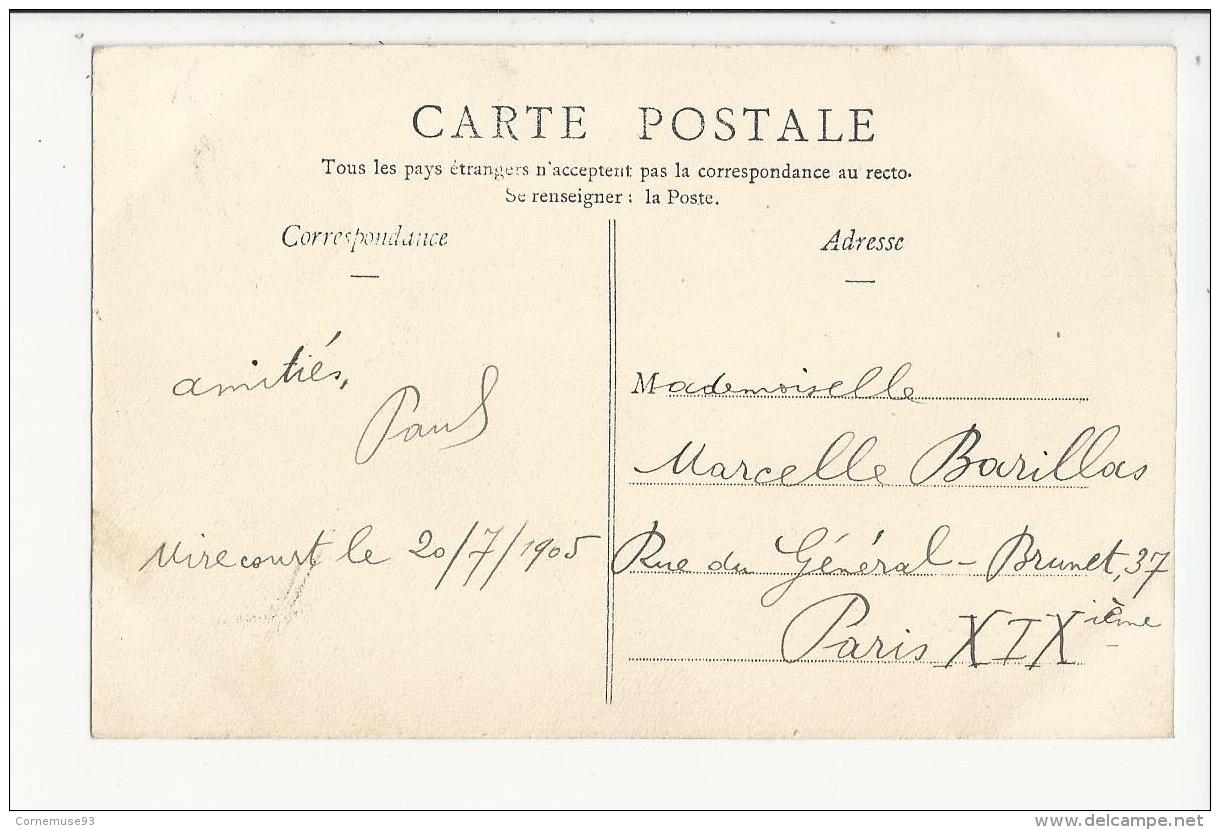 CARTE POSTALE
Tous les pays étrangers n'acceptent pas la correspondance au recto.
Se renseigner : la Poste.
Correspondance
amitiés,
Paul
Mirecourt le 20/7/1905
Adresse
Mademoiselle
Marcelle Barillas
Rue du Général-Brunet, 37
Paris XIXième
Cornemuse93
www.delcampe.net